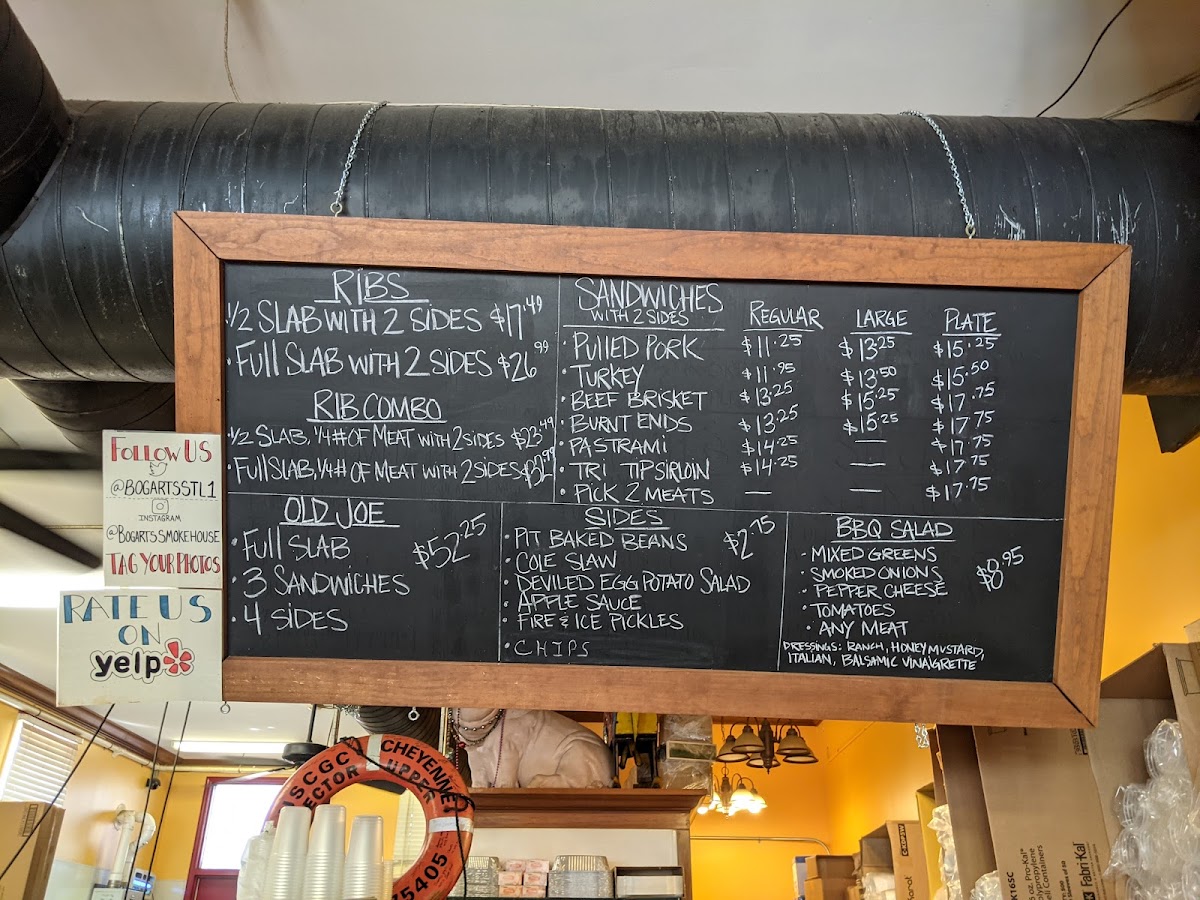 RIBS
1/2 SLAB WITH 2 SIDES $17.49
• FULL SLAB WITH 2 SIDES $26.99
RIB COMBO
1/2 SLAB, 1/4# OF MEAT WITH 2 SIDES $23.49
• FULL SLAB, 1/4# OF MEAT WITH 2 SIDES
SANDWICHES
WITH 2 SIDES
REGULAR LARGE PLATE
• PULLED PORK $11.25 $13.25 $15.25
• TURKEY $11.95 $13.50 $15.50
• BEEF BRISKET $13.25 $15.25 $17.75
• BURNT ENDS $13.25 $15.25 $17.75
• PASTRAMI $14.25 — $17.75
• TRI TIP SIRLOIN $14.25 — $17.75
• PICK 2 MEATS — — $17.75
OLD JOE
• FULL SLAB $52.25
• 3 SANDWICHES
• 4 SIDES
SIDES
• PIT BAKED BEANS $2.75
• COLE SLAW
• DEVILED EGG POTATO SALAD
• APPLE SAUCE
• FIRE & ICE PICKLES
• CHIPS
BBQ SALAD
• MIXED GREENS
• SMOKED ONIONS $8.95
• PEPPER CHEESE
• TOMATOES
• ANY MEAT
DRESSINGS: RANCH, HONEY MUSTARD,
ITALIAN, BALSAMIC VINAIGRETTE
FOLLOW US
@BOGARTSSTL1
INSTAGRAM
@BOGARTSSMOKEHOUSE
TAG YOUR PHOTOS
RATE US
ON
yelp
CHEYENNE
USCGC
SECTOR UPPR
75405
Fabri-Kal